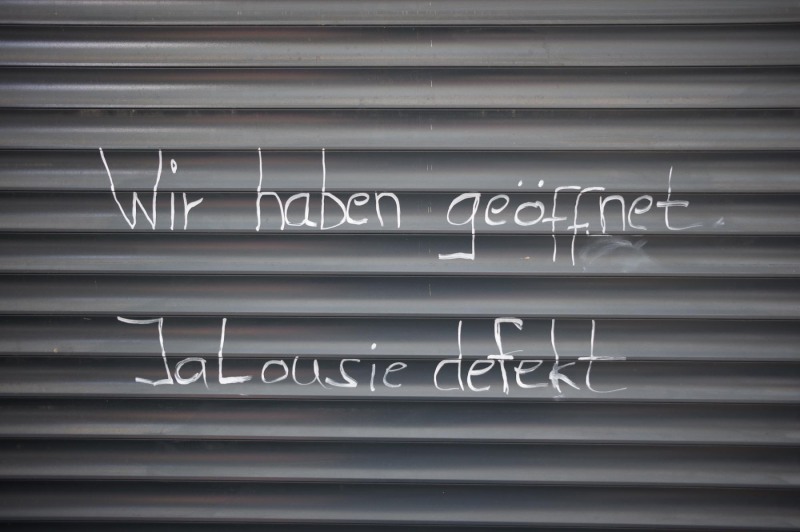 Wir haben geöffnet.
Jalousie defekt